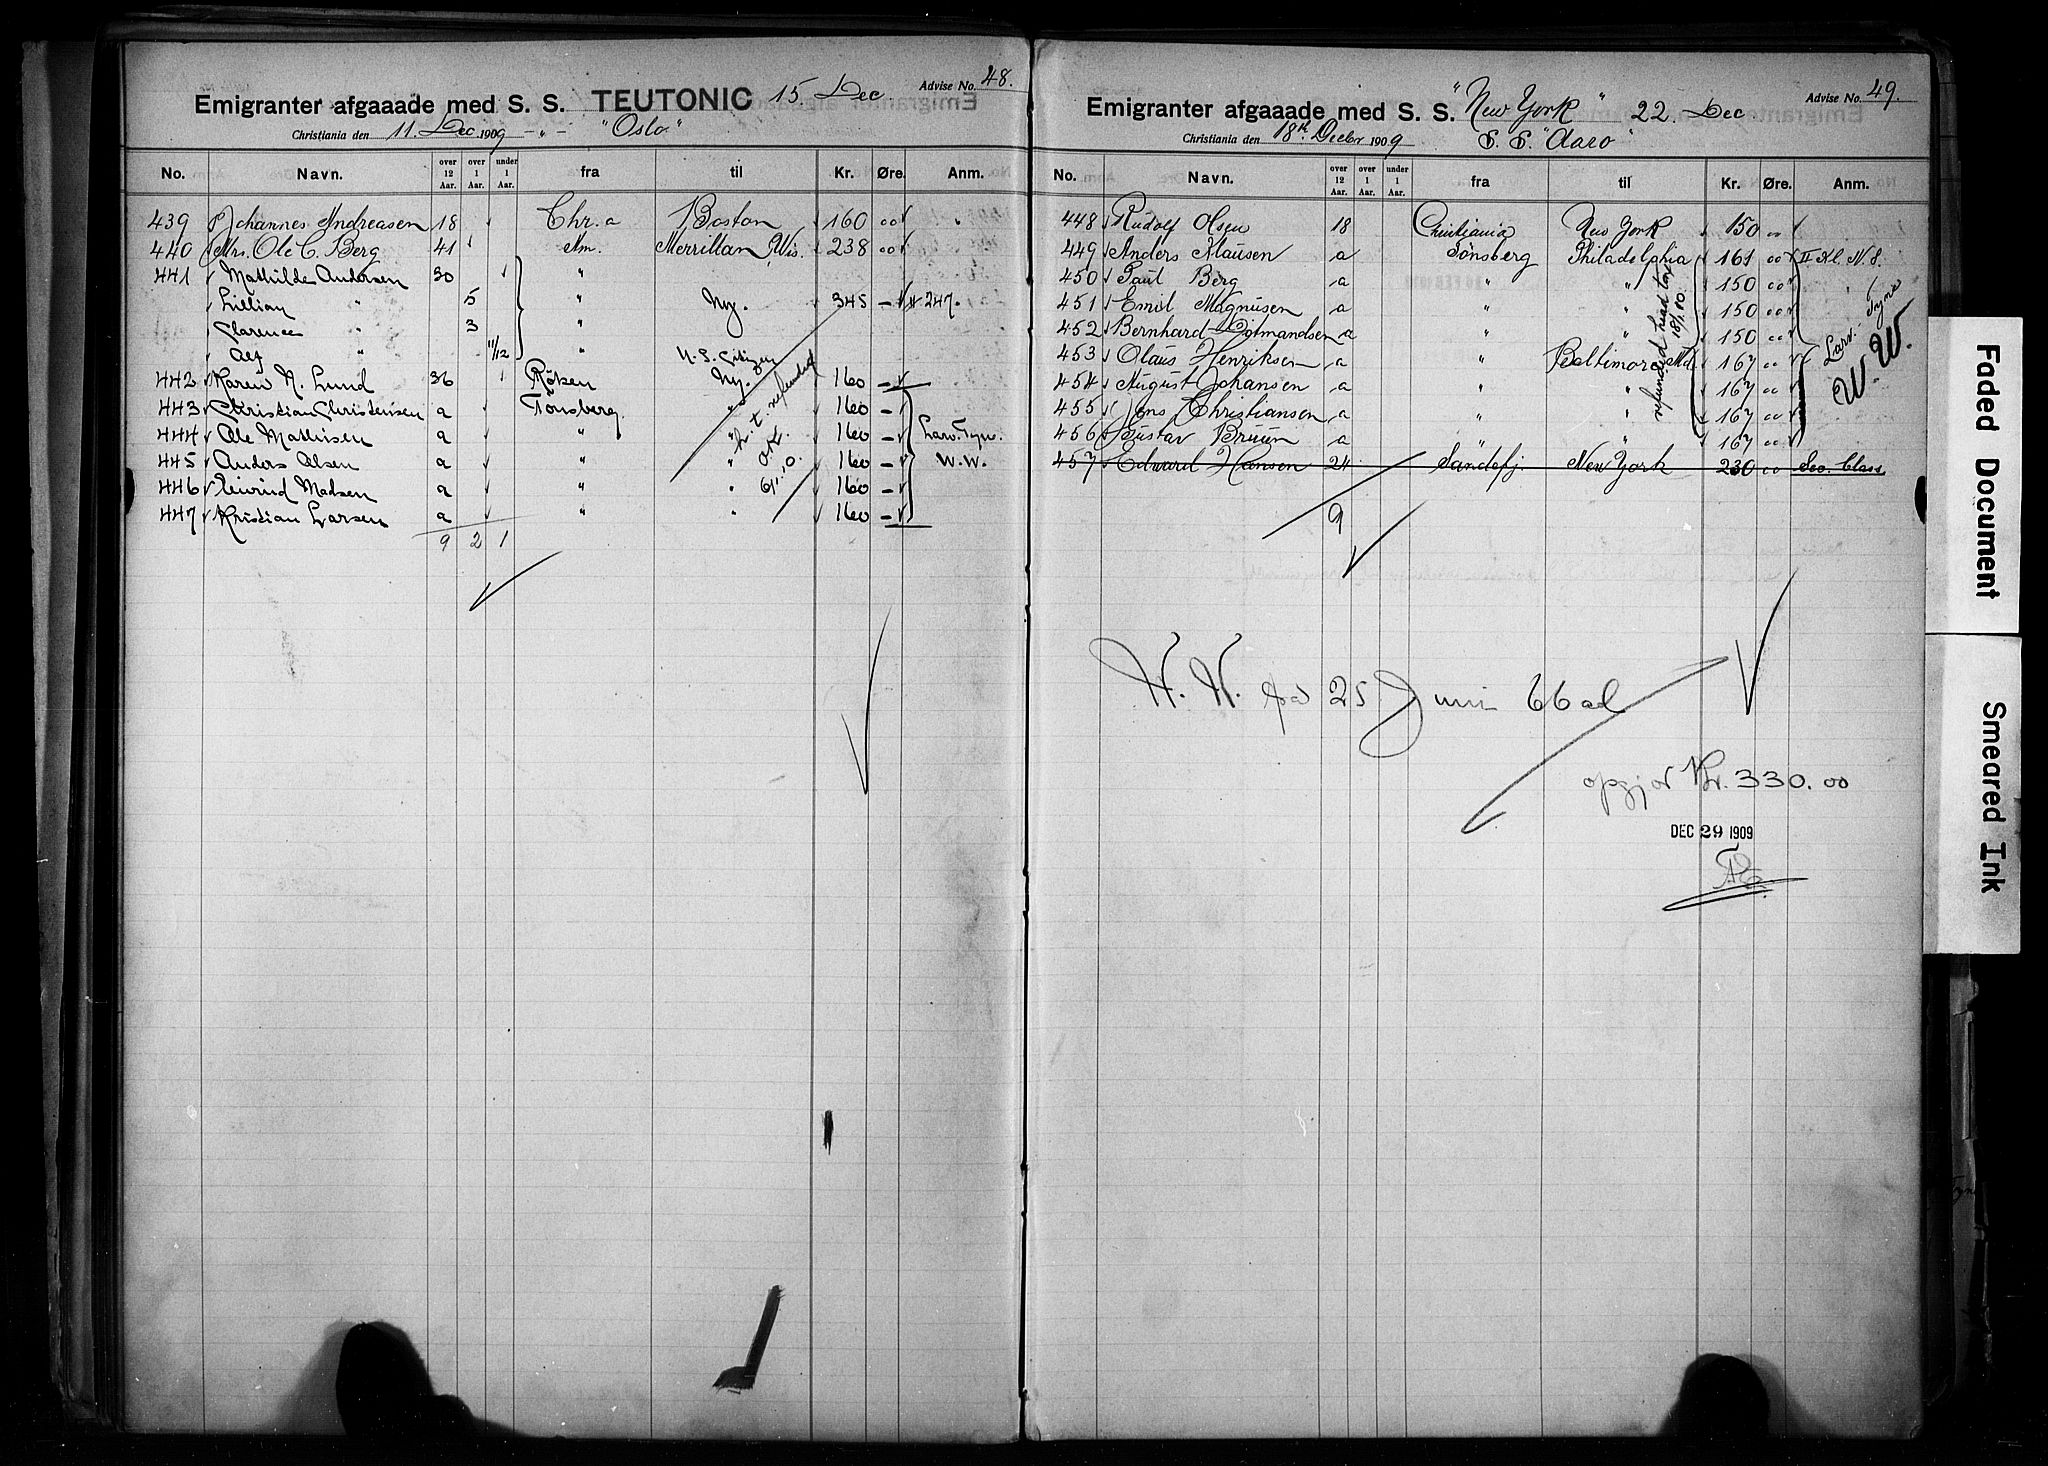 Advise No. 48.
Emigranter afgaaade med S. S. TEUTONIC 15. Dec
Christiania den 11. Dec. 1909 -"- "Oslo."
No. Navn. over 12 Aar. over 1 Aar. under 1 Aar. fra til Kr. Øre. Anm.
439 Johannes Andreasen 18 Chr.a Boston 160 00
440 Mrs. Ole C. Berg 41 Am. Merrillan, Wis. 238 00
441 Mathilde Andersen 30 "
Lillian " 5 " Ny. 345 - # 247.
Clarence " 3 "
Alf " 11/12 " U. S. Citizen
442 Karen N. Lund 36 Röken Ny. 160 -
443 Christian Christensen a Tönsberg " 160 -
444 Ole Mathisen a " " 160 - Larv. Tyne.
445 Anders Olsen a " " 160 - W.W.
446 Eivind Madsen a " " 160 -
447 Kristian Larsen a " " 160 -
h. t. refunded
9 2 1
Advise No. 49.
Emigranter afgaaade med S. S. "New York" 22 Dec
Christiania den 18th Decbr 1909 S. S. "Aaro"
No. Navn. over 12 Aar. over 1 Aar. under 1 Aar. fra til Kr. Øre. Anm.
448 Rudolf Olsen 18 Christiania New York 150 00
449 Anders Klausen a Tønsberg Philadelphia 161 00 II Kl. N. S.
450 Paul Berg a " " 150 00 "
451 Emil Magnusen a " " 150 00
452 Bernhard a " " 150 00
453 Olaus Henriksen a " Baltimore Md. 167 00
454 August Johansen a " " 167 00
455 Jens Christiansen a " " 167 00
456 Gustav Bruun a " " 167 00
457 Edward Hansen 24 Sandefj. New York 230 00 Sec. Class
refunded head tax
Larv. - Tyne
W. W.
9
25 Juni 66
opgjor Kr. 330.00
DEC 29 1909
Faded Document
Smeared Ink